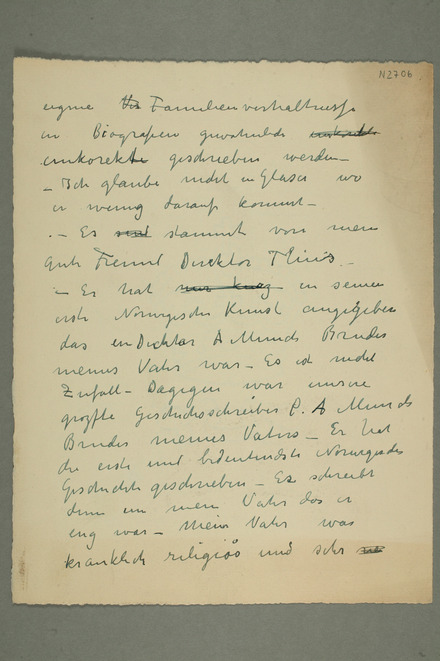 N2706
eigene Familienverhältnisse
in Biografien gewöhnlich
inkorekt geschrieben werden –
– Ich glaube nicht in Glaser wo
er wenig darauf kommt –
– Es stammt von mein
Gute Freund Direktor Thiis –
– Er hat in seiner
erste Norwegische Kunst angegeben
das ein Dichter A Munch Bruder
meines Vater war – Es ist nicht
Zufall – Dagegen war unsere
größte Geschichtsschreiber P. A Munch
Bruder meines Vaters – Er hat
die erste und bedeutendste Norwegische
Geschichte geschrieben – Es schreibt
dann um mein Vater das er
eng war – Mein Vater war
kranklich religiös und sehr